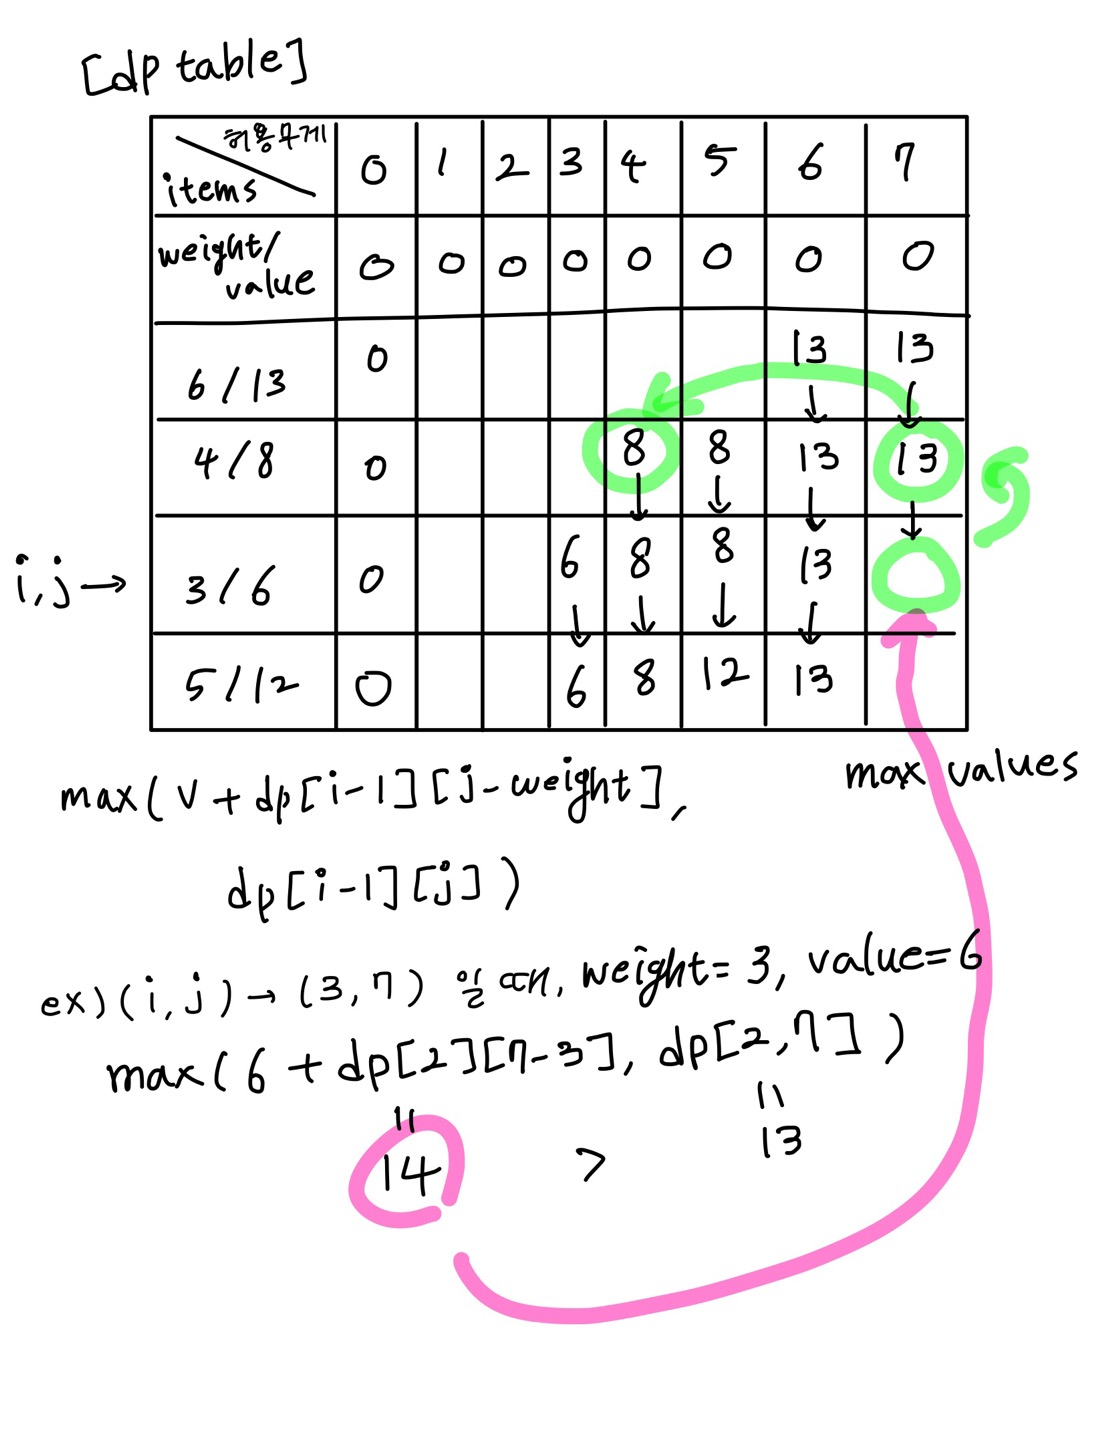 [dp table]
허용무게
items 0 1 2 3 4 5 6 7
weight/
value 0 0 0 0 0 0 0 0
6/13 0 13 13
↓ ↓
4/8 0 8 8 13 13
↓ ↓ ↓ ↓
i,j → 3/6 0 6 8 8 13
↓ ↓ ↓ ↓
5/12 0 6 8 12 13
max values
max( v + dp[i-1][j-weight],
dp[i-1][j] )
ex) (i,j) → (3,7) 일 때, weight= 3, value=6
max( 6 + dp[2][7-3], dp[2,7] )
11 11
14 > 13